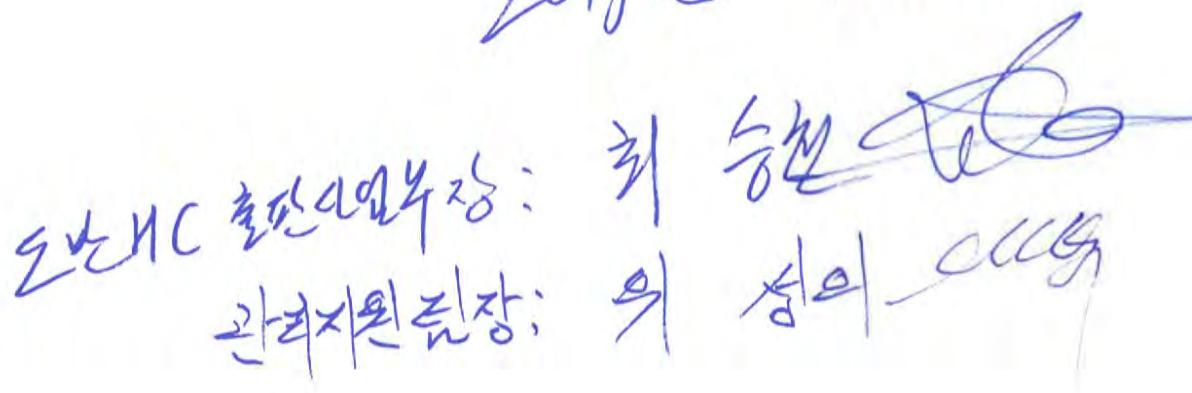 도반HC 출판사업부장: 최 승천
관리지원팀장: 위 성의